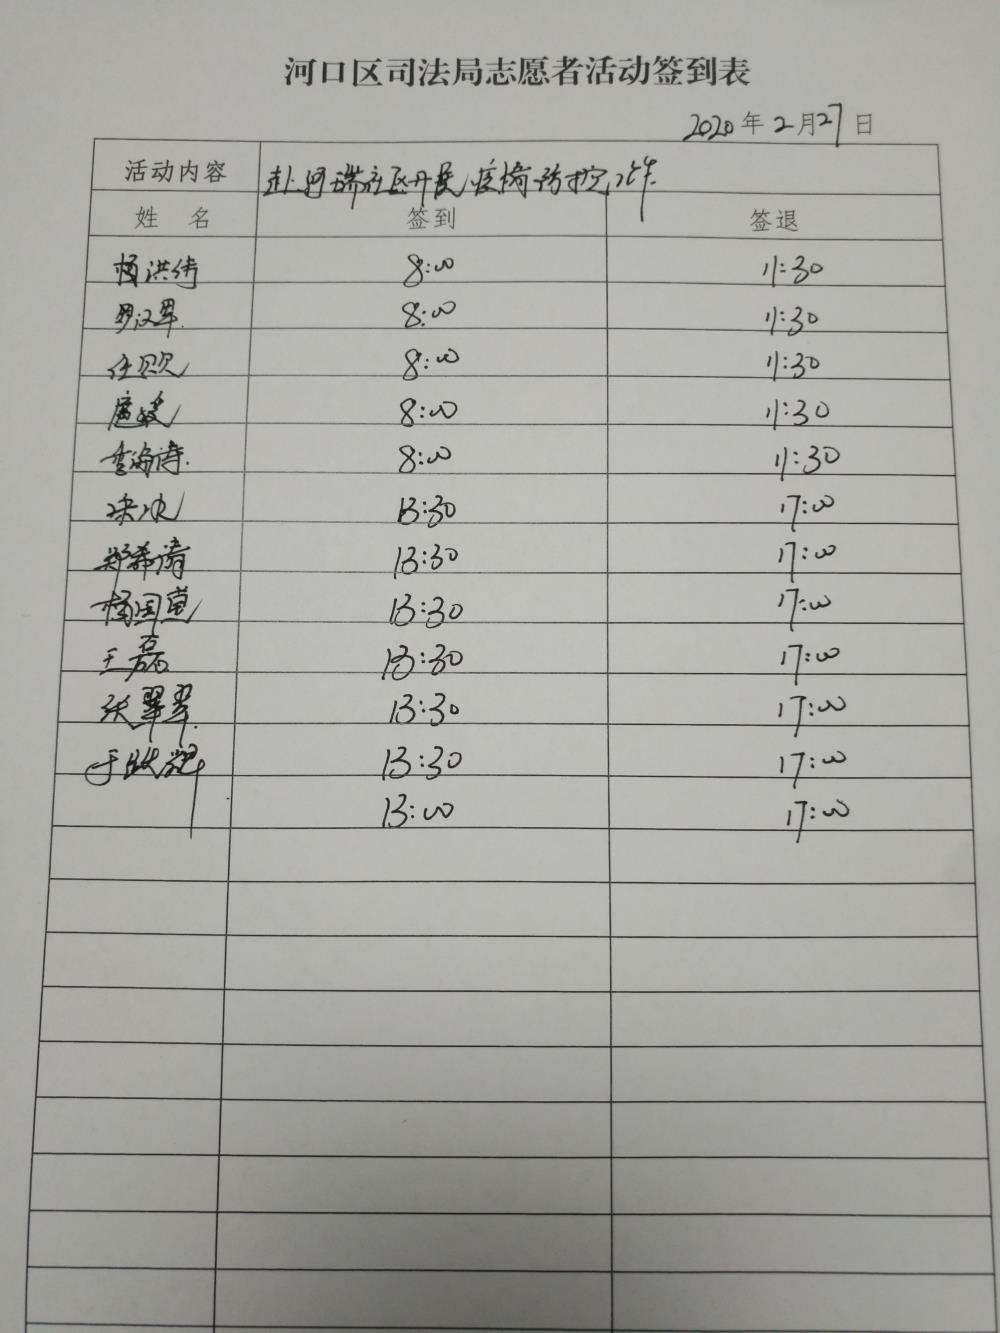 河口区司法局志愿者活动签到表
2020年2月27日
活动内容 赴河瑞社区开展疫情防控工作
姓 名 签到 签退
杨洪伟 8:00 11:30
罗汉军 8:00 11:30
任 8:00 11:30
扈媛 8:00 11:30
李海涛 8:00 11:30
冰 13:30 17:00
郑希清 13:30 17:00
杨国 13:30 17:00
王磊 13:30 17:00
张翠翠 13:30 17:00
于跃 13:30 17:00
13:00 17:00